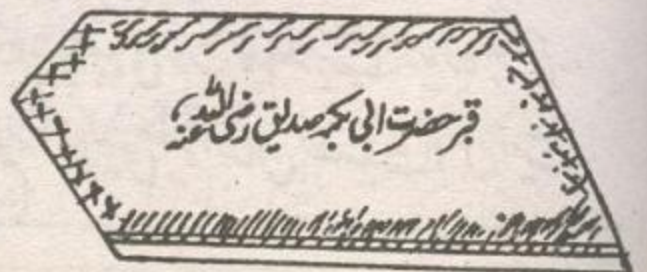 قبر حضرت ابی بکر صدیق رضی اللہ عنہ